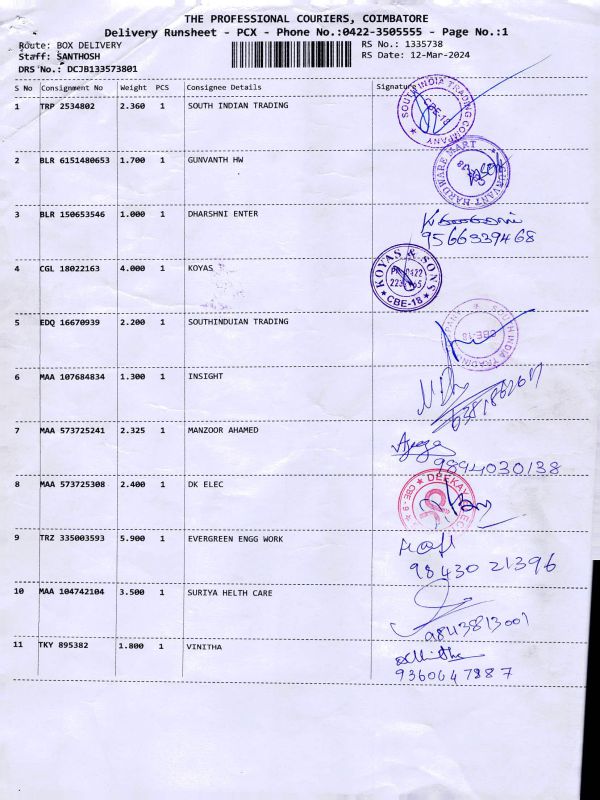 THE PROFESSIONAL COURIERS, COIMBATORE
Delivery Runsheet - PCX - Phone No.:0422-3505555 - Page No.:1
Route: BOX DELIVERY RS No.: 1335738
Staff: SANTHOSH RS Date: 12-Mar-2024
DRS No.: DCJB133573801
S No Consignment No Weight PCS Consignee Details Signature
1 TRP 2534802 2.360 1 SOUTH INDIAN TRADING
SOUTH INDIA TRADING COMPANY CBE-18
2 BLR 6151480653 1.700 1 GUNVANTH HW
GUNVANT HARDWARE MART
3 BLR 150653546 1.000 1 DHARSHNI ENTER
9566339468
4 CGL 18022163 4.000 1 KOYAS
KOYAS & SONS CBE-18
5 EDQ 16670939 2.200 1 SOUTHINDUIAN TRADING
SOUTH INDIA TRADING CBE-18
6 MAA 107684834 1.300 1 INSIGHT
7 MAA 573725241 2.325 1 MANZOOR AHAMED
9894030138
8 MAA 573725308 2.400 1 DK ELEC
DEEKAY
9 TRZ 335003593 5.900 1 EVERGREEN ENGG WORK
98430 21396
10 MAA 104742104 3.500 1 SURIYA HELTH CARE
9843813001
11 TKY 895382 1.800 1 VINITHA
9360647887